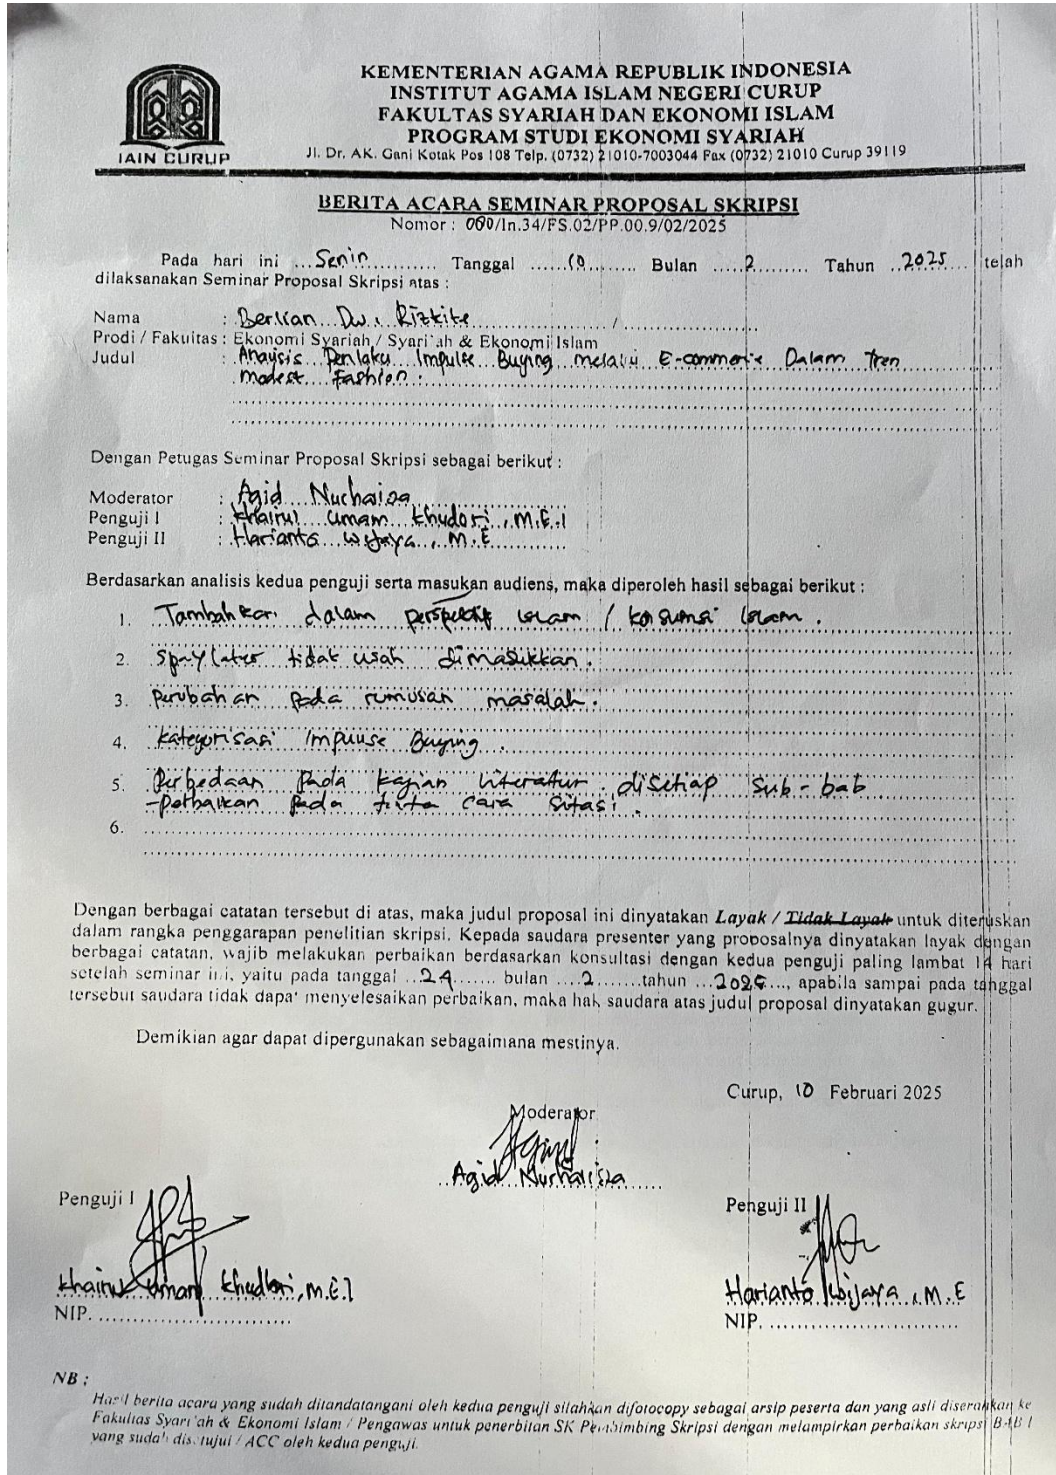 KEMENTERIAN AGAMA REPUBLIK INDONESIA
INSTITUT AGAMA ISLAM NEGERI CURUP
FAKULTAS SYARIAH DAN EKONOMI ISLAM
PROGRAM STUDI EKONOMI SYARIAH
Jl. Dr. AK. Gani Kotak Pos 108 Telp. (0732) 21010-7003044 Fax (0732) 21010 Curup 39119
IAIN CURUP
BERITA ACARA SEMINAR PROPOSAL SKRIPSI
Nomor : 000/In.34/FS.02/PP.00.9/02/2025
Pada hari ini ...Senin........... Tanggal ......10........ Bulan .....2........ Tahun ..2025.... telah
dilaksanakan Seminar Proposal Skripsi atas :
Nama : Berlian Dwi Rizkite / ....................
Prodi / Fakultas : Ekonomi Syariah / Syari'ah & Ekonomi Islam
Judul : Anaysis Perilaku Impulse Buying melalui E-commerce Dalam Tren
modest Fashion.
Dengan Petugas Seminar Proposal Skripsi sebagai berikut :
Moderator : Agid Nurhaliza
Penguji I : Khairul Umam Khudori, M.E.I
Penguji II : Harianto Wijaya, M.E
Berdasarkan analisis kedua penguji serta masukan audiens, maka diperoleh hasil sebagai berikut :
1. Tambahkan dalam perspektif Islam / konsumsi Islam.
2. Spaylater tidak usah dimasukkan.
3. Perubahan pada rumusan masalah.
4. Kategorisasi Impulse Buying.
5. Perbedaan pada kajian literatur disetiap Sub-bab
-perbaikan pada tata cara Sitasi.
6.
Dengan berbagai catatan tersebut di atas, maka judul proposal ini dinyatakan Layak / Tidak Layak untuk diteruskan
dalam rangka penggarapan penelitian skripsi. Kepada saudara presenter yang proposalnya dinyatakan layak dengan
berbagai catatan, wajib melakukan perbaikan berdasarkan konsultasi dengan kedua penguji paling lambat 14 hari
setelah seminar ini, yaitu pada tanggal ...24....... bulan ....2.......tahun ...2025...., apabila sampai pada tanggal
tersebut saudara tidak dapat menyelesaikan perbaikan, maka hak saudara atas judul proposal dinyatakan gugur.
Demikian agar dapat dipergunakan sebagaimana mestinya.
Curup, 10 Februari 2025
Moderator
Agid Nurhaliza
Penguji I
Penguji II
Khairul Umam Khudori, M.E.I
Harianto Wijaya, M.E
NIP. ............................
NIP. ............................
NB :
Hasil berita acara yang sudah ditandatangani oleh kedua penguji silahkan difotocopy sebagai arsip peserta dan yang asli diserahkan ke
Fakultas Syari'ah & Ekonomi Islam / Pengawas untuk penerbitan SK Pembimbing Skripsi dengan melampirkan perbaikan skripsi BAB I
yang sudah disetujui / ACC oleh kedua penguji.